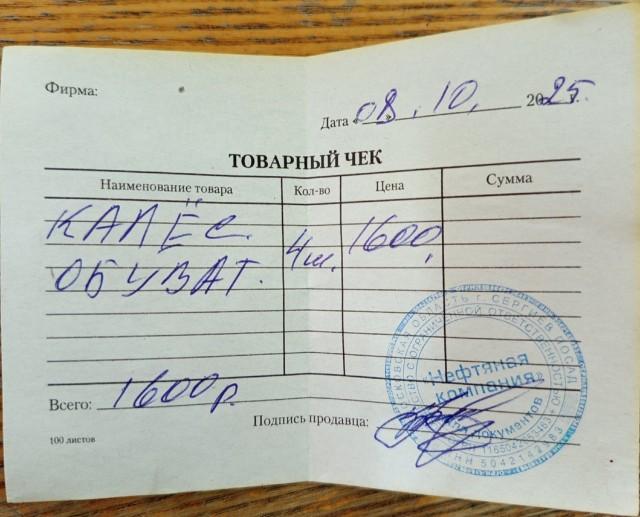 Фирма:
Дата « 08 » . 10 . 2025 г.
ТОВАРНЫЙ ЧЕК
Наименование товара Кол-во Цена Сумма
КАЛЁС. 4ш. 1600,
ОБУВАТ.
Всего: 1600 р.
Подпись продавца:
100 листов
МОСКОВСКАЯ ОБЛАСТЬ г. СЕРГИЕВ ПОСАД
ОБЩЕСТВО С ОГРАНИЧЕННОЙ ОТВЕТСТВЕННОСТЬЮ
«Нефтяная
компания»
для документов
ИНН 5042142383